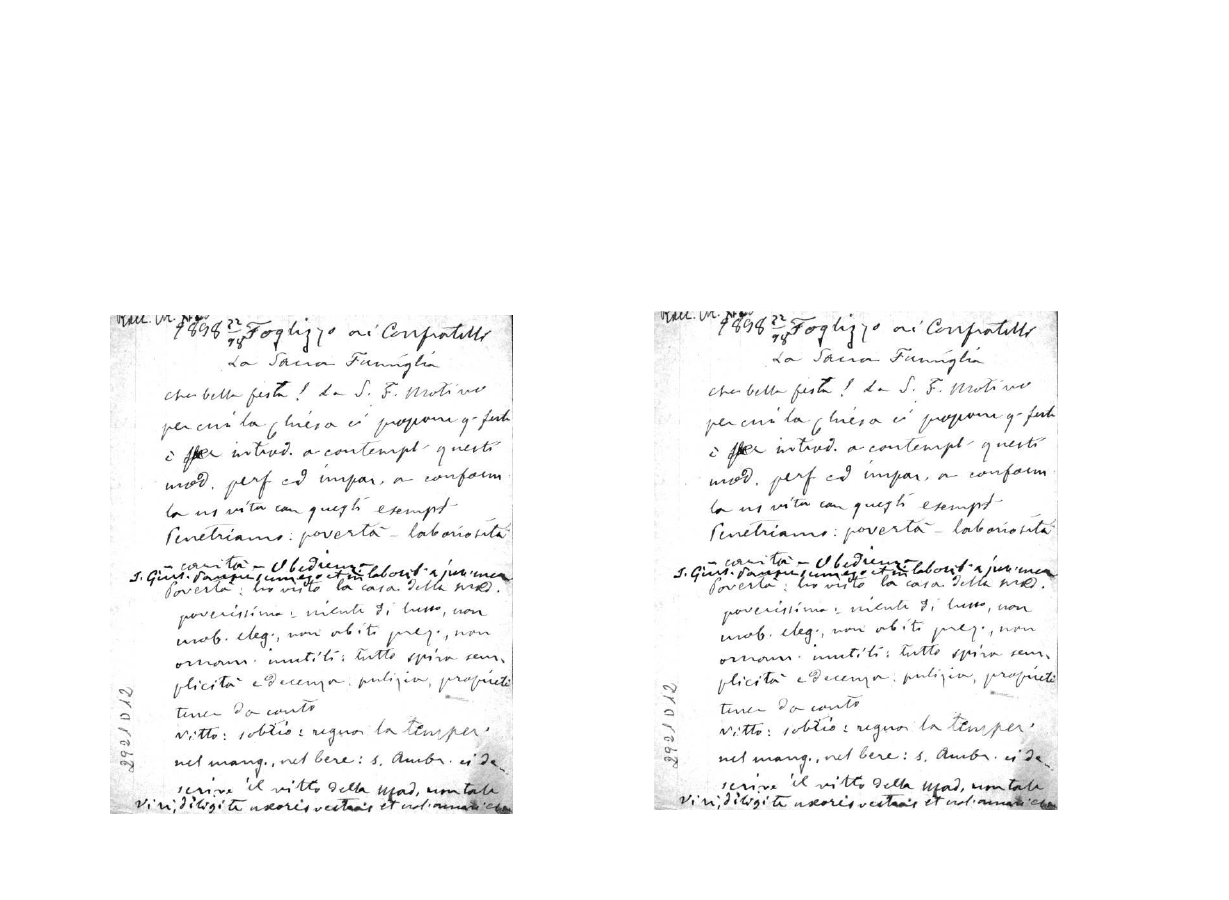 1898 22/98 Foglizzo ai Confratelli
La Sacra Famiglia
che bella festa! La S. F. Motivo
per cui la Chiesa ci propone q. fest
è per introd. a contempl. questi
mod. perf ed impar. a conform
la ns vita con questi esempt
Penetriamo: povertà - laboriosità
- carità - Obbedienza
S. Gius. et in laborib. a juv.
Povertà: ho visto la casa della
poverissima: niente di lusso, non
mob. eleg., non abiti prez., non
ornam. inutili: tutto spira sem-
plicità e decenza: pulizia, proprietà
tener da conto
Vitto: sobrio: regna la temper.
nel mang., nel bere: s. Ambr. ci de-
scrive il vitto della Mad, non tale
viri, diligite uxores vestras et
2921012
1898 22/98 Foglizzo ai Confratelli
La Sacra Famiglia
che bella festa! La S. F. Motivo
per cui la Chiesa ci propone q. fest
è per introd. a contempl. questi
mod. perf ed impar. a conform
la ns vita con questi esempt
Penetriamo: povertà - laboriosità
- carità - Obbedienza
S. Gius. et in laborib. a juv.
Povertà: ho visto la casa della
poverissima: niente di lusso, non
mob. eleg., non abiti prez., non
ornam. inutili: tutto spira sem-
plicità e decenza: pulizia, proprietà
tener da conto
Vitto: sobrio: regna la temper.
nel mang., nel bere: s. Ambr. ci de-
scrive il vitto della Mad, non tale
viri, diligite uxores vestras et
2921012